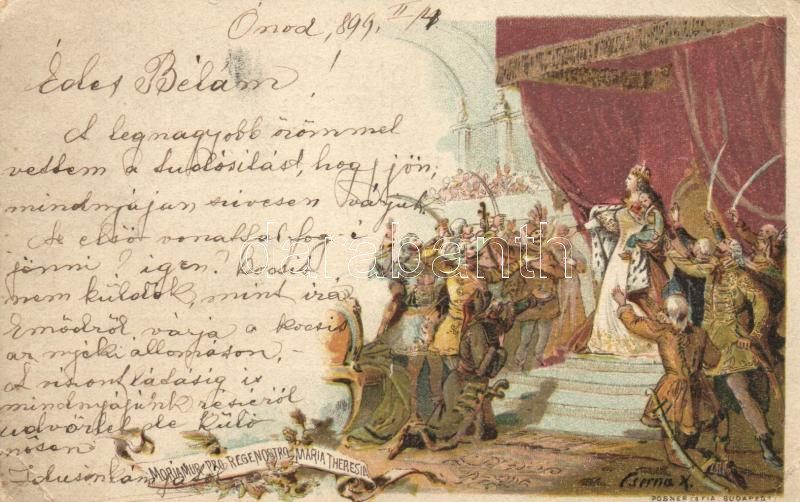 Ónod, 899. II/4.
Édes Bélám!
A legnagyobb örömmel
vettem a tudósitást, hogy jön,
mindnyájan szivesen várjuk.
Az első vonattal fog-e
jönni? igen? kocsit
nem küldök, mint irá
Emődről várja a kocsis
az nyéki állomáson, -
A viszontlátásig is
mindnyájunk részéről
üdvözlet de külö
nösen
Idusonkám
MORIAMUR PRO REGE NOSTRO MARIA THERESIA
Cserna K.
POSNER és FIA. BUDAPEST.
darabanth